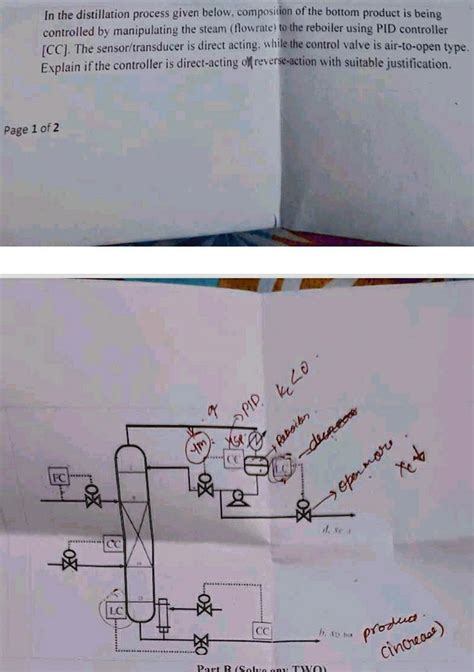 In the distillation process given below, composition of the bottom product is being
controlled by manipulating the steam (flowrate) to the reboiler using PID controller
[CC]. The sensor/transducer is direct acting. while the control valve is air-to-open type.
Explain if the controller is direct-acting or reverse-action with suitable justification.
Page 1 of 2
PID
Kc<0
Ym
Xsp
CC
LC
decreases
open more
FC
CC
LC
CC
produce
(increase)
Part B (Solve any TWO)